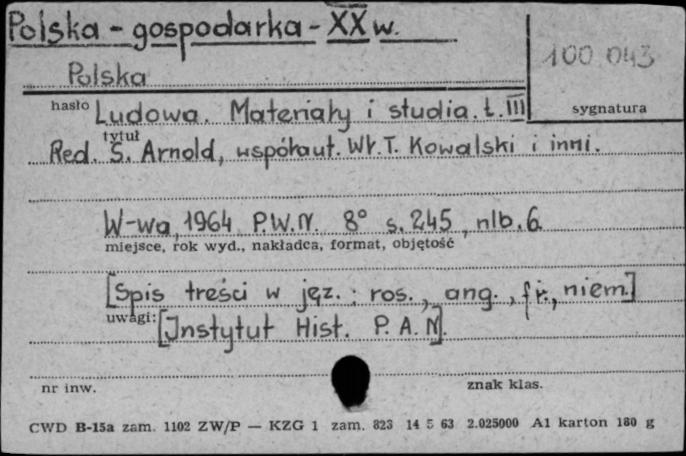 Polska - gospodarka - XX w.
100 043
Polska
hasło
sygnatura
Ludowa. Materiały i studia. t. III
tytuł
Red. S. Arnold, współaut. Wł. T. Kowalski i inni.
W-wa, 1964 P.W.N. 8° s. 245, nlb. 6
miejsce, rok wyd., nakładca, format, objętość
[Spis treści w jęz.: ros., ang., fr., niem.]
uwagi:
[Instytut Hist. P.A.N].
nr inw.
znak klas.
CWD B-15a zam. 1102 ZW/P — KZG 1 zam. 823 14 5 63 2.025000 A1 karton 180 g